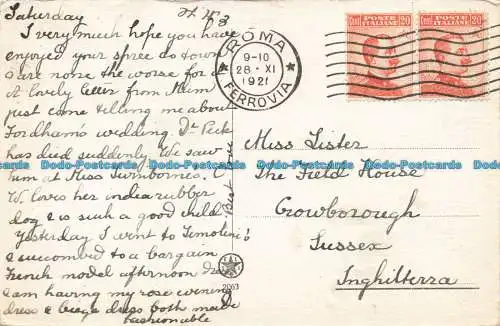 Saturday
I very much hope you have
enjoyed your spree to town
& are none the worse for it
A lovely letter from Mum
just come telling me about
Fordham's wedding. Dr Peck
has died suddenly. We saw
him at Miss Swinborne's.
W. loves her india rubber
dog & is such a good child.
Yesterday I went to
& succumbed to a bargain
French model afternoon dress
& am having my rose evening
dress & beige dress both made
fashionable
ROMA
9-10
28·XI
1921
FERROVIA
Cent 20
POSTE ITALIANE
20
Cent 20
POSTE ITALIANE
20
Miss Lister
The Field House
Crowborough
Sussex
Inghilterra
2063
Dodo-Postcards